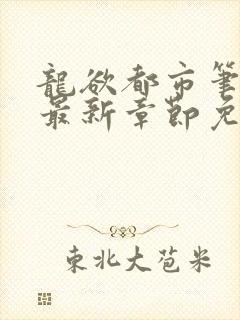 龍欲都市筆
最新章節免
東北大苞米